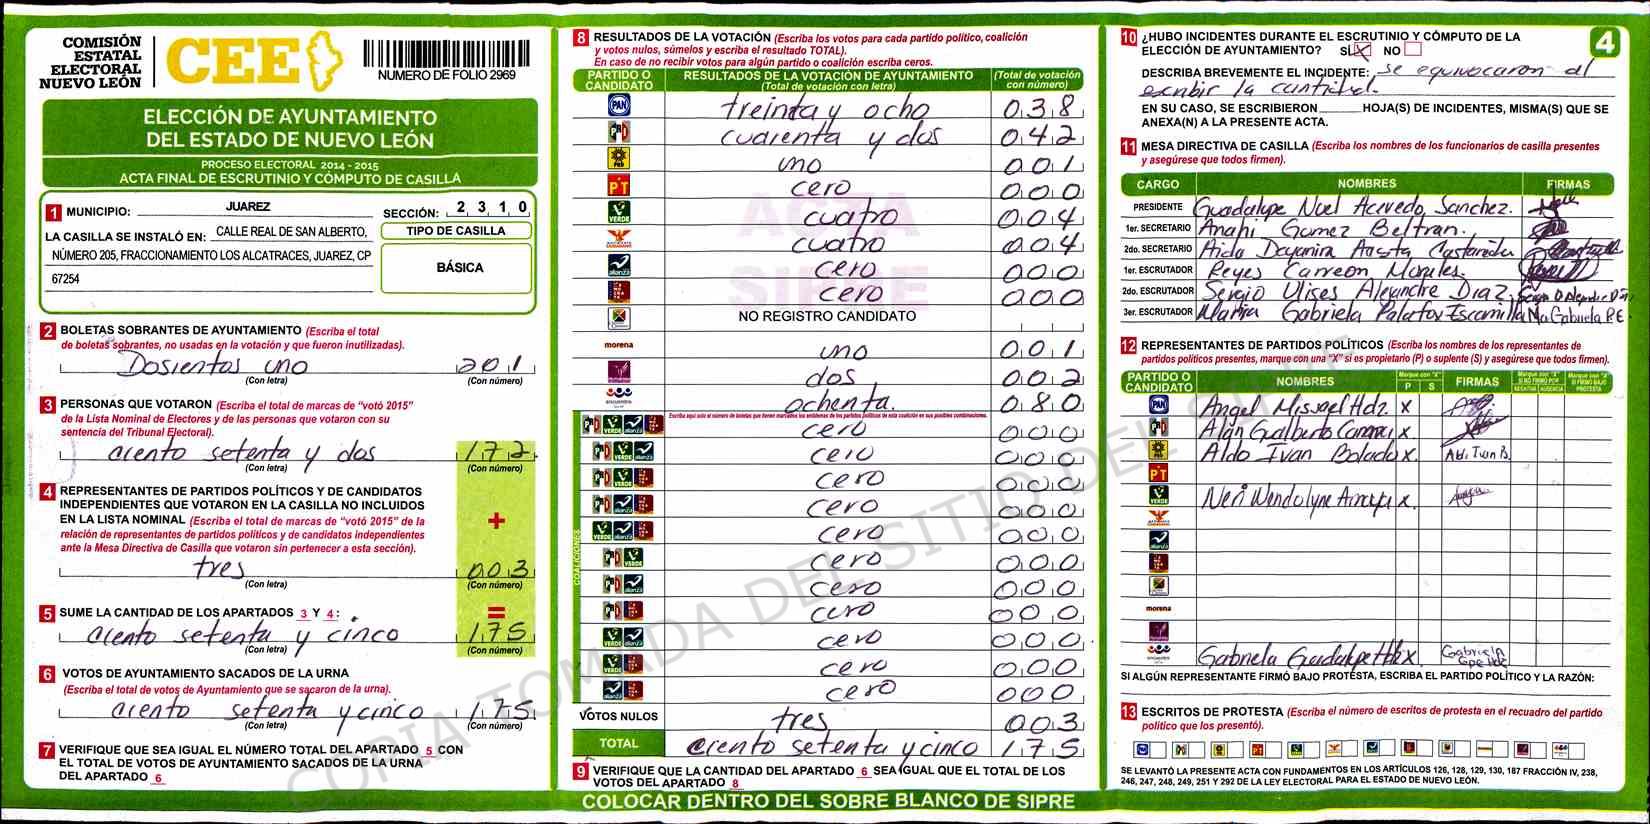 COMISIÓN
ESTATAL
ELECTORAL
NUEVO LEÓN
CEE
NUMERO DE FOLIO 2969
ELECCIÓN DE AYUNTAMIENTO
DEL ESTADO DE NUEVO LEÓN
PROCESO ELECTORAL 2014 - 2015
ACTA FINAL DE ESCRUTINIO Y CÓMPUTO DE CASILLA
1 MUNICIPIO: JUAREZ SECCIÓN: 2 3 1 0
LA CASILLA SE INSTALÓ EN: CALLE REAL DE SAN ALBERTO,
NÚMERO 205, FRACCIONAMIENTO LOS ALCATRACES, JUAREZ, CP
67254
TIPO DE CASILLA
BÁSICA
2 BOLETAS SOBRANTES DE AYUNTAMIENTO (Escriba el total
de boletas sobrantes, no usadas en la votación y que fueron inutilizadas).
Dosientos uno 201
(Con letra) (Con número)
3 PERSONAS QUE VOTARON (Escriba el total de marcas de "votó 2015"
de la Lista Nominal de Electores y de las personas que votaron con su
sentencia del Tribunal Electoral).
ciento setenta y dos 172
(Con letra) (Con número)
4 REPRESENTANTES DE PARTIDOS POLÍTICOS Y DE CANDIDATOS
INDEPENDIENTES QUE VOTARON EN LA CASILLA NO INCLUIDOS
EN LA LISTA NOMINAL (Escriba el total de marcas de "votó 2015" de la
relación de representantes de partidos políticos y de candidatos independientes
ante la Mesa Directiva de Casilla que votaron sin pertenecer a esta sección).
+
tres 003
(Con letra) (Con número)
5 SUME LA CANTIDAD DE LOS APARTADOS 3 Y 4: =
ciento setenta y cinco 175
(Con letra) (Con número)
6 VOTOS DE AYUNTAMIENTO SACADOS DE LA URNA
(Escriba el total de votos de Ayuntamiento que se sacaron de la urna).
ciento setenta y cinco 175
(Con letra) (Con número)
7 VERIFIQUE QUE SEA IGUAL EL NÚMERO TOTAL DEL APARTADO 5 CON
EL TOTAL DE VOTOS DE AYUNTAMIENTO SACADOS DE LA URNA
DEL APARTADO 6
8 RESULTADOS DE LA VOTACIÓN (Escriba los votos para cada partido político, coalición
y votos nulos, súmelos y escriba el resultado TOTAL).
En caso de no recibir votos para algún partido o coalición escriba ceros.
PARTIDO O CANDIDATO RESULTADOS DE LA VOTACIÓN DE AYUNTAMIENTO (Total de votación con letra) (Total de votación con número)
PAN treinta y ocho 038
PRD cuarenta y dos 042
PRD uno 001
PT cero 000
VERDE cuatro 004
cuatro 004
alianza cero 000
cero 000
NO REGISTRO CANDIDATO
morena uno 001
dos 002
encuentro ochenta 080
Escriba aquí solo el número de boletas que tienen marcados los emblemas de los partidos políticos de esta coalición en sus posibles combinaciones.
COALICIONES
cero 000
cero 000
cero 000
cero 000
cero 000
cero 000
cero 000
cero 000
cero 000
cero 000
cero 000
VOTOS NULOS tres 003
TOTAL ciento setenta y cinco 175
9 VERIFIQUE QUE LA CANTIDAD DEL APARTADO 6 SEA IGUAL QUE EL TOTAL DE LOS
VOTOS DEL APARTADO 8
COLOCAR DENTRO DEL SOBRE BLANCO DE SIPRE
ACTA
SIPRE
COPIA TOMADA DEL SITIO DEL SIPRE
10 ¿HUBO INCIDENTES DURANTE EL ESCRUTINIO Y CÓMPUTO DE LA
ELECCIÓN DE AYUNTAMIENTO? SÍ X NO
DESCRIBA BREVEMENTE EL INCIDENTE: se equivocaron al
escribir la cantidad.
EN SU CASO, SE ESCRIBIERON HOJA(S) DE INCIDENTES, MISMA(S) QUE SE
ANEXA(N) A LA PRESENTE ACTA.
4
11 MESA DIRECTIVA DE CASILLA (Escriba los nombres de los funcionarios de casilla presentes
y asegúrese que todos firmen).
CARGO NOMBRES FIRMAS
PRESIDENTE Guadalupe Noel Acevedo Sanchez.
1er. SECRETARIO Anahi Gomez Beltran.
2do. SECRETARIO Aida Dayanira Acosta Castañeda
1er. ESCRUTADOR Reyes Carreon Morales.
2do. ESCRUTADOR Sergio Ulises Alejandre Diaz
3er. ESCRUTADOR Maria Gabriela Palafox Escamilla Ma Gabriela P.E
12 REPRESENTANTES DE PARTIDOS POLÍTICOS (Escriba los nombres de los representantes de
partidos políticos presentes, marque con una "X" si es propietario (P) o suplente (S) y asegúrese que todos firmen).
PARTIDO O CANDIDATO NOMBRES Marque con "X" P S FIRMAS Marque con "X" SI NO FIRMÓ POR NEGATIVA AUSENCIA Marque con "X" SI FIRMÓ BAJO PROTESTA
PAN Angel Missael Hdz x
Alan Gualberto x
Aldo Ivan Bolado x
PT
VERDE Neri Wendolyne x
alianza
morena
Gabriela Guadalupe Hdz x Gabriela Gpe Hdz
SI ALGÚN REPRESENTANTE FIRMÓ BAJO PROTESTA, ESCRIBA EL PARTIDO POLÍTICO Y LA RAZÓN:
13 ESCRITOS DE PROTESTA (Escriba el número de escritos de protesta en el recuadro del partido
político que los presentó).
SE LEVANTÓ LA PRESENTE ACTA CON FUNDAMENTOS EN LOS ARTÍCULOS 126, 128, 129, 130, 187 FRACCIÓN IV, 238,
246, 247, 248, 249, 251 Y 292 DE LA LEY ELECTORAL PARA EL ESTADO DE NUEVO LEÓN.